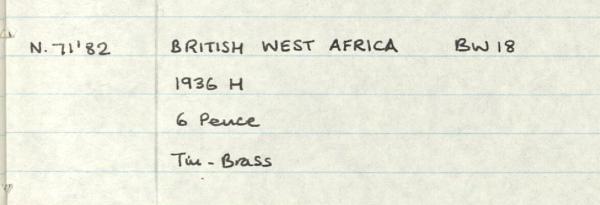 N. 71'82 BRITISH WEST AFRICA BW 18
1936 H
6 Pence
Tin - Brass